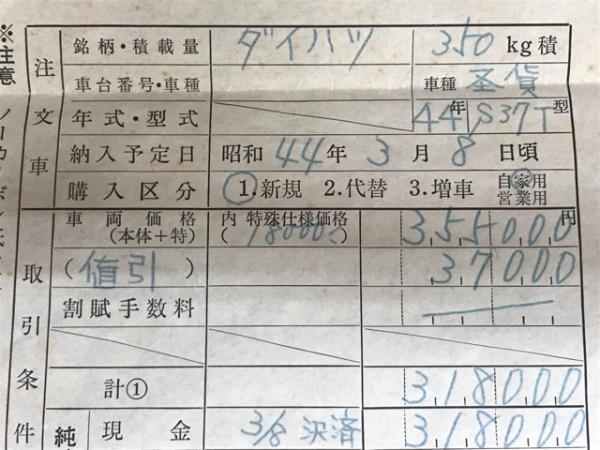 ※注意 ノーカーボン紙
注文車
銘柄・積載量 ダイハツ 350 kg積
車台番号・車種 車種 軽貨
年式・型式 44年 S37T型
納入予定日 昭和 44年 3月 8日頃
購入区分 1.新規 2.代替 3.増車 自家用 営業用
取引条件
車両価格(本体+特) 内特殊仕様価格( 18000 ) 355,000円
(値引) 37000
割賦手数料
計① 318000
純 現金 3/8 決済 318000